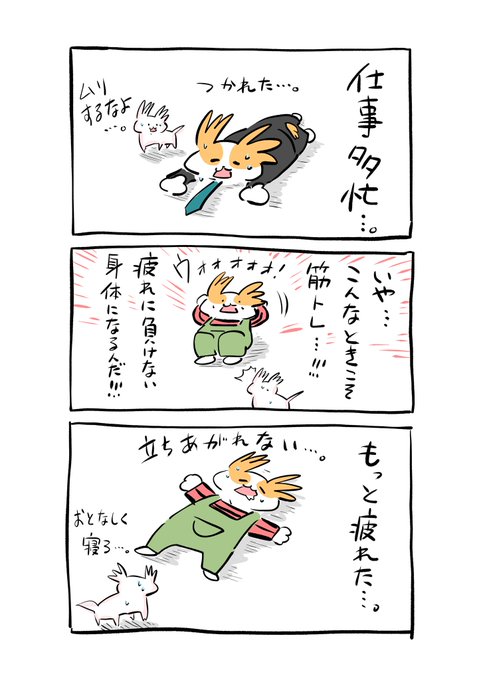 仕事多忙…。
つかれた…。
ムリ
するなよ
…。
いや…
こんなときこそ
筋トレ…!!!
ウォォォォォ!
疲れに負けない
身体になるんだ!!!
もっと疲れた…。
立ちあがれない…。
おとなしく
寝ろ…。